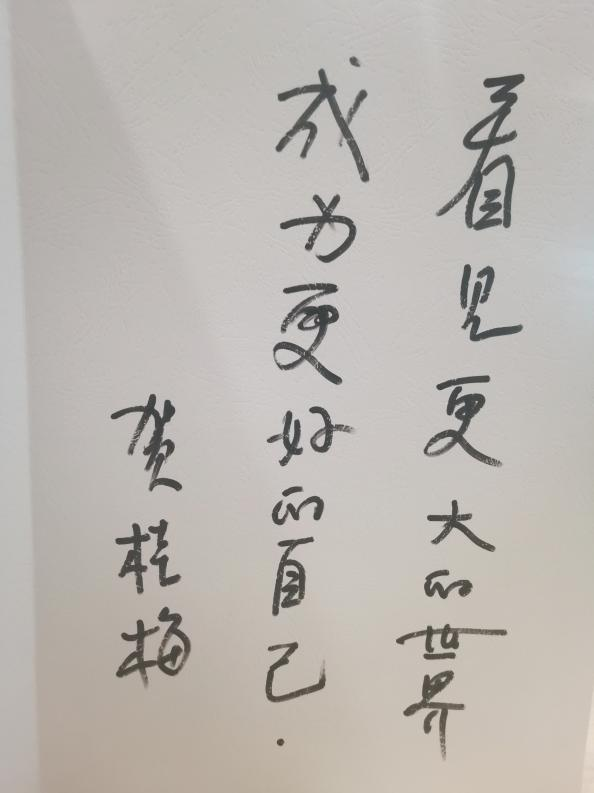 看见更大的世界
成为更好的自己.
贺桂梅